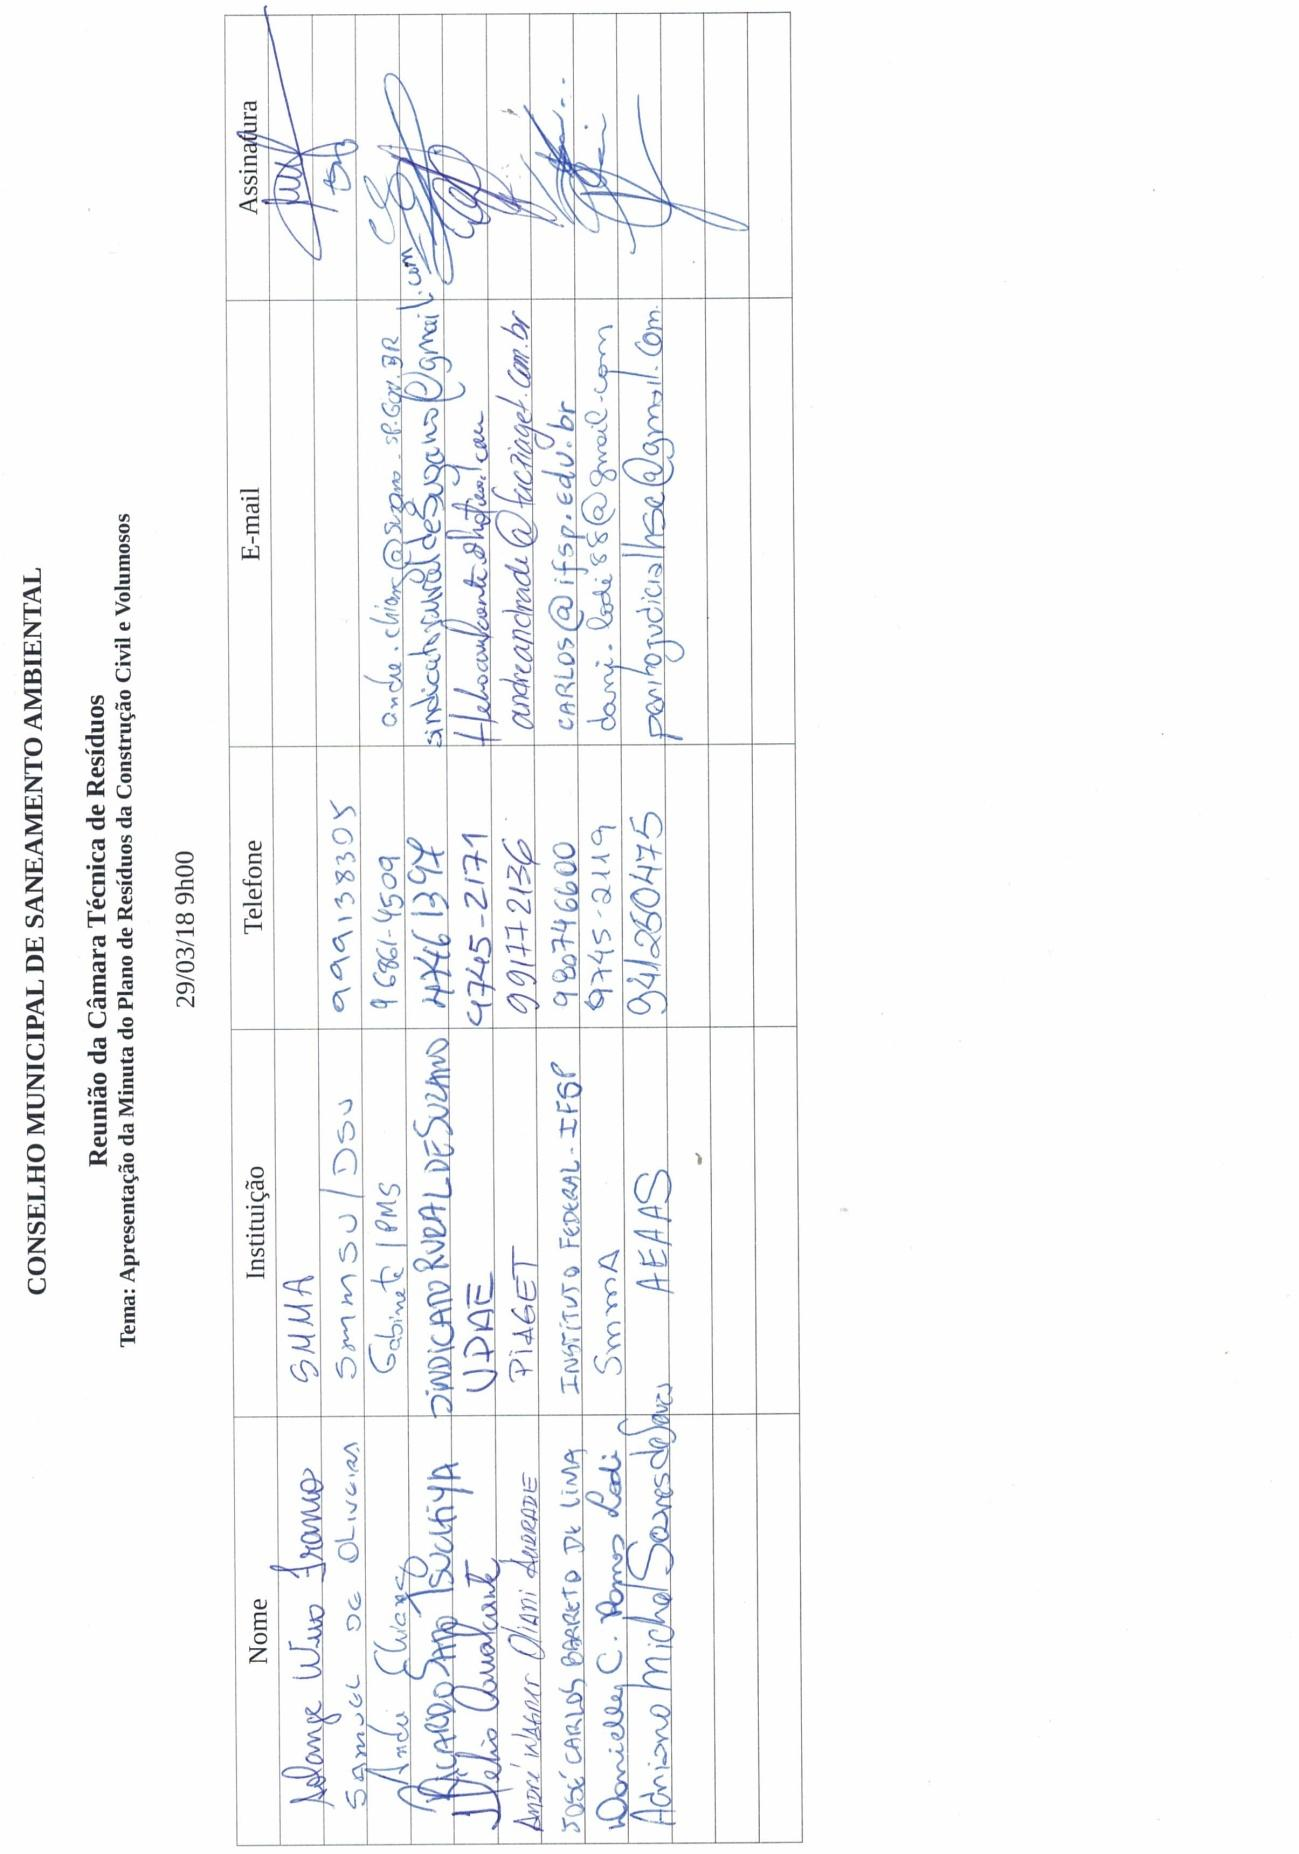 CONSELHO MUNICIPAL DE SANEAMENTO AMBIENTAL
Reunião da Câmara Técnica de Resíduos
Tema: Apresentação da Minuta do Plano de Resíduos da Construção Civil e Volumosos
29/03/18 9h00
Nome Instituição Telefone E-mail Assinatura
Solange Wuo Franco SMMA
SAMUEL DE OLIVEIRA SMMSU/DSU 999138305
André Chiang Gabinete/PMS 96861-4509 andre.chiang@suzano.sp.gov.BR
RICARDO SATO TSUCHIYA SINDICATO RURAL DE SUZANO 47461397 sindicatoruraldesuzano@gmail.com
Helio Cavalcante UPAE 4745-2171
ANDRÉ WAGNER OLIANI ANDRADE PIAGET 991772136 andreandrade@fucpiaget.com.br
JOSÉ CARLOS BARRETO DE LIMA INSTITUTO FEDERAL-IFSP 980746600 CARLOS@ifsp.edu.br
Danielley C. Ramos Lodi SMMA 4745-2119 dany.lodi88@gmail.com
Adriano Michel Soares de Novaes AEAAS 941250475 peritojudicialhsc@gmail.com